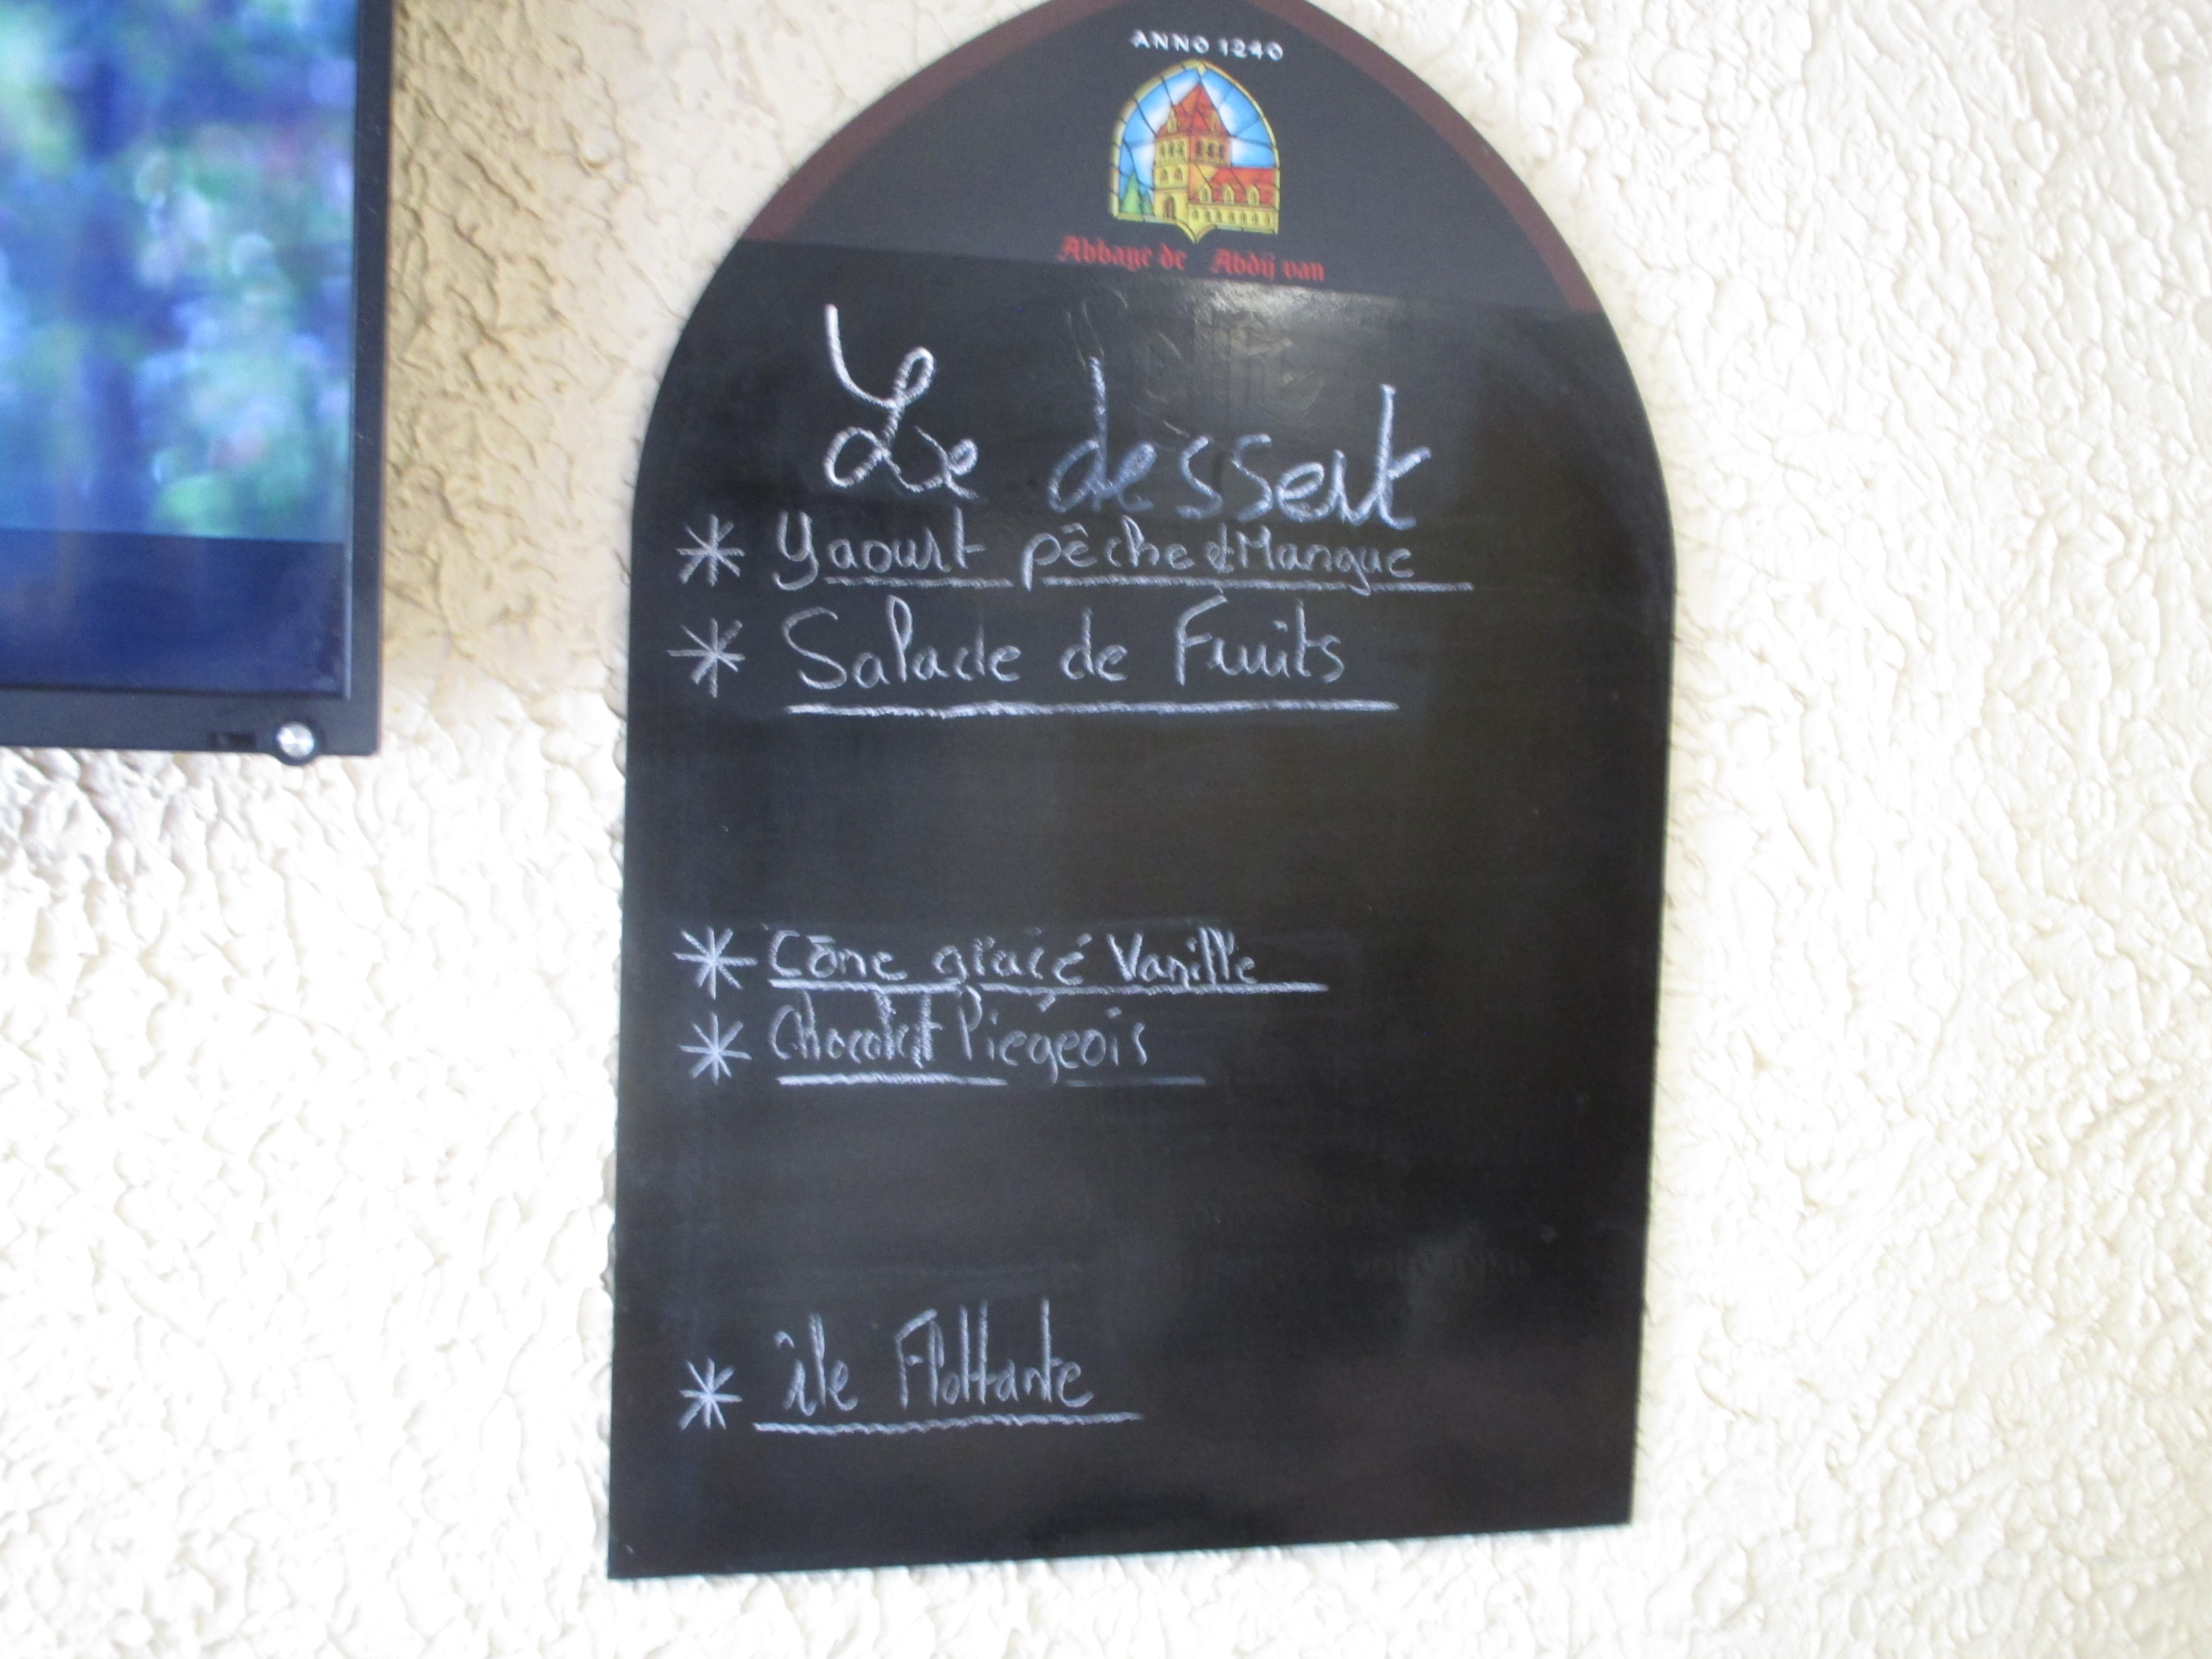 ANNO 1240
Abbaye de Abdij van
Le dessert
* Yaourt pêche et Mangue
* Salade de Fruits
* Cône glacé Vanille
* Chocolat liégeois
* île Flottante